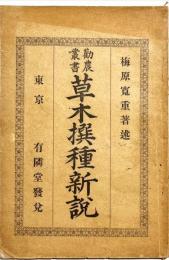 梅原寛重著述
勸農叢書
草木撰種新說
東京 有隣堂發兌